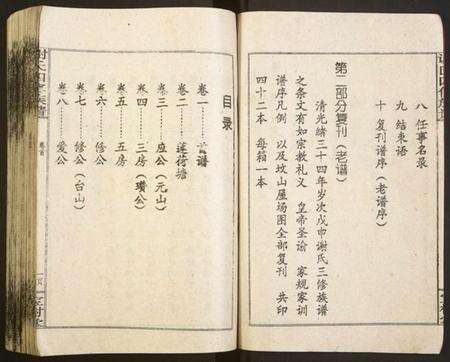 八 任事名录
九 结束语
十 复刊谱序（老谱序）
第二部分复刊（老谱）
清光绪三十四年岁次戊申谢氏三修族谱
之条文有如宗教礼义 皇帝圣谕 家规家训
谱序凡例 以及坟山屋场图全部复刊 共印
四十二本 每箱一本
目录
卷一
卷二 莲荷塘
卷三 应公（元山）
卷四 三房（瓒公）
卷五 五房
卷六 修公
卷七 修公（台山）
卷八 爱公
卷首